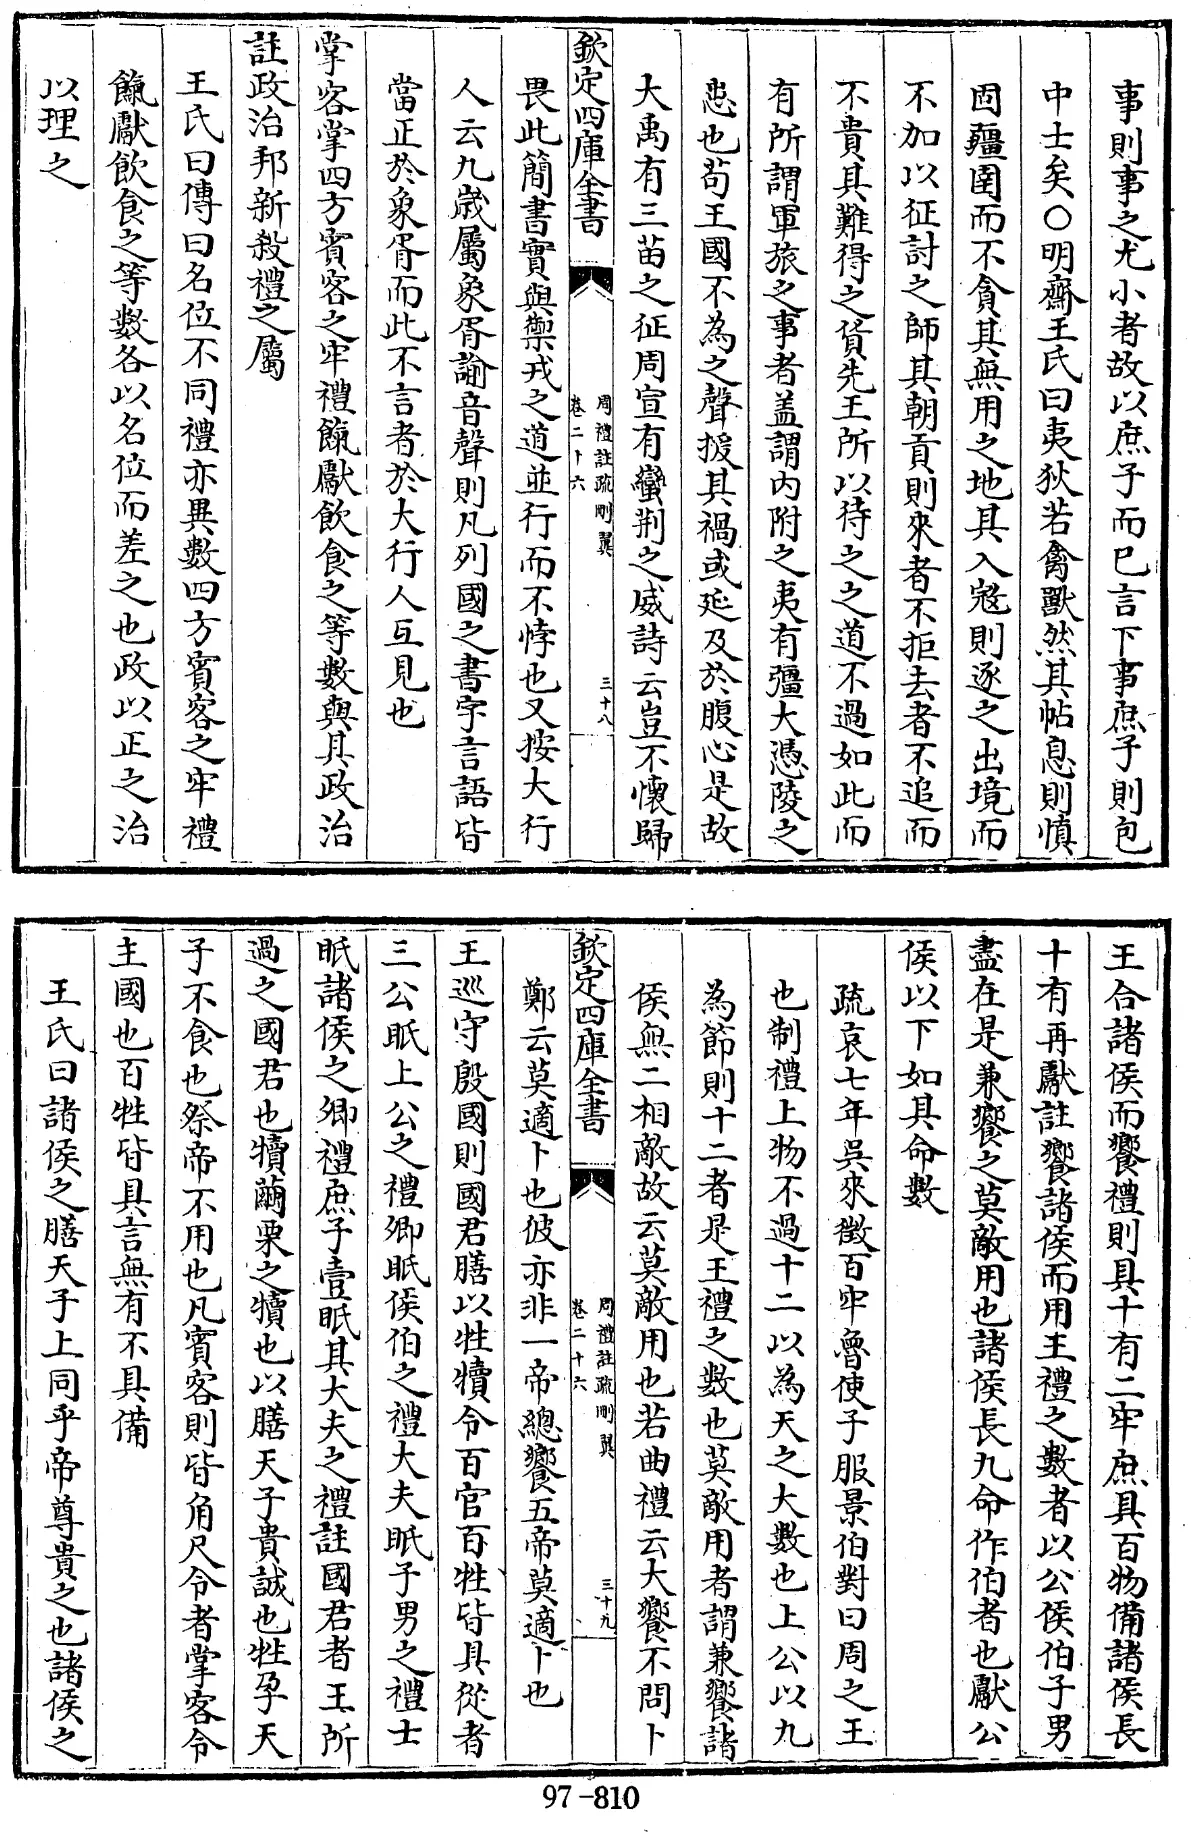 事則事之尤小者故以庶子而已言下事庶子則包
中士矣○明齋王氏曰夷狄若禽獸然其帖息則慎
固疆圉而不貪其無用之地其入寇則逐之出境而
不加以征討之師其朝貢則來者不拒去者不追而
不貴其難得之貨先王所以待之之道不過如此而
有所謂軍旅之事者盖謂內附之夷有彊大憑陵之
患也苟王國不為之聲援其禍或延及於腹心是故
大禹有三苗之征周宣有蠻荆之威詩云豈不懷歸
欽定四庫全書
周禮註疏刪翼
卷二十六
三十八
畏此簡書實與禦戎之道並行而不悖也又按大行
人云九歲屬象胥諭音聲則凡列國之書字言語皆
當正於象胥而此不言者於大行人互見也
掌客掌四方賓客之牢禮餼獻飲食之等數與其政治
註政治邦新殺禮之屬
王氏曰傳曰名位不同禮亦異數四方賓客之牢禮
餼獻飲食之等數各以名位而差之也政以正之治
以理之
王合諸侯而饗禮則具十有二牢庶具百物備諸侯長
十有再獻註饗諸侯而用王禮之數者以公侯伯子男
盡在是兼饗之莫敵用也諸侯長九命作伯者也獻公
侯以下如其命數
疏哀七年吳來徵百牢魯使子服景伯對曰周之王
也制禮上物不過十二以為天之大數也上公以九
為節則十二者是王禮之數也莫敵用者謂兼饗諸
侯無二相敵故云莫敵用也若曲禮云大饗不問卜
欽定四庫全書
周禮註疏刪翼
卷二十六
三十九
鄭云莫適卜也彼亦非一帝總饗五帝莫適卜也
王巡守殷國則國君膳以牲犢令百官百牲皆具從者
三公眡上公之禮卿眡侯伯之禮大夫眡子男之禮士
眡諸侯之卿禮庶子壹眡其大夫之禮註國君者王所
過之國君也犢繭栗之犢也以膳天子貴誠也牲孕天
子不食也祭帝不用也凡賓客則皆角尺令者掌客令
主國也百牲皆具言無有不具備
王氏曰諸侯之膳天子上同乎帝尊貴之也諸侯之
97-810